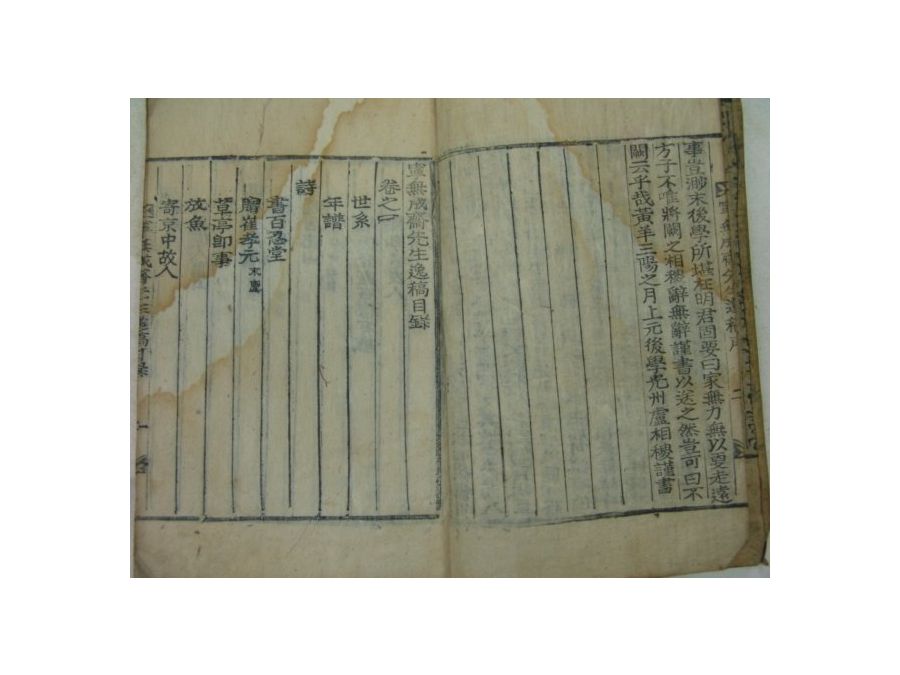 事豈渺末後學所堪在明君固要曰家無力無以更走遠
方子不唯將闕之相稷辭無辭謹書以送之然豈可曰不
闕云乎哉黃羊三陽之月上元後學光州盧相稷謹書
無成齋先生逸稿目錄
卷之一
世系
年譜
詩
書百忍堂
贈崔孝元
草亭卽事
放魚
寄京中故人